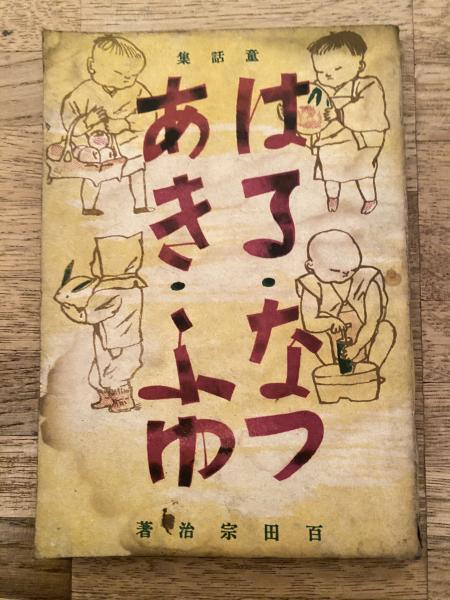 童話集
はる・なつ
あき・ふゆ
百田宗治著